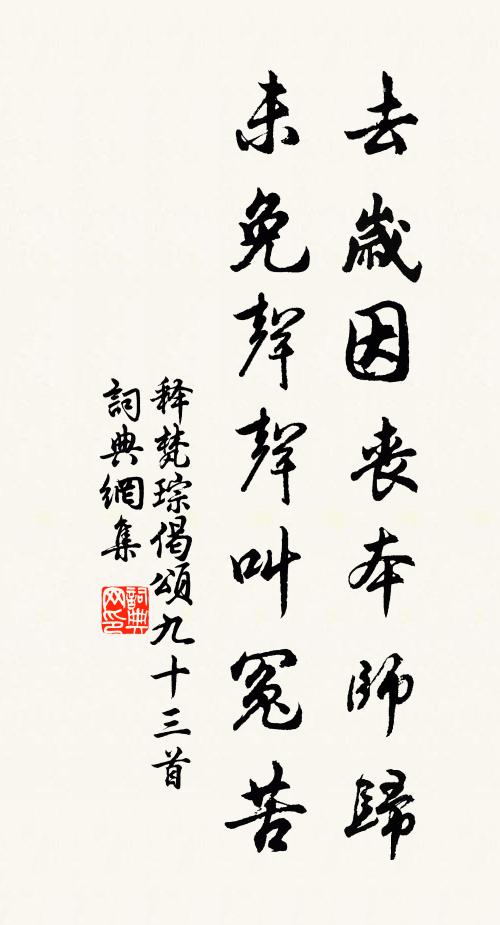 去歲因喪本師歸
未免聲聲叫冤苦
释梵琮偈頌九十三首
詞典網集
詞典网印